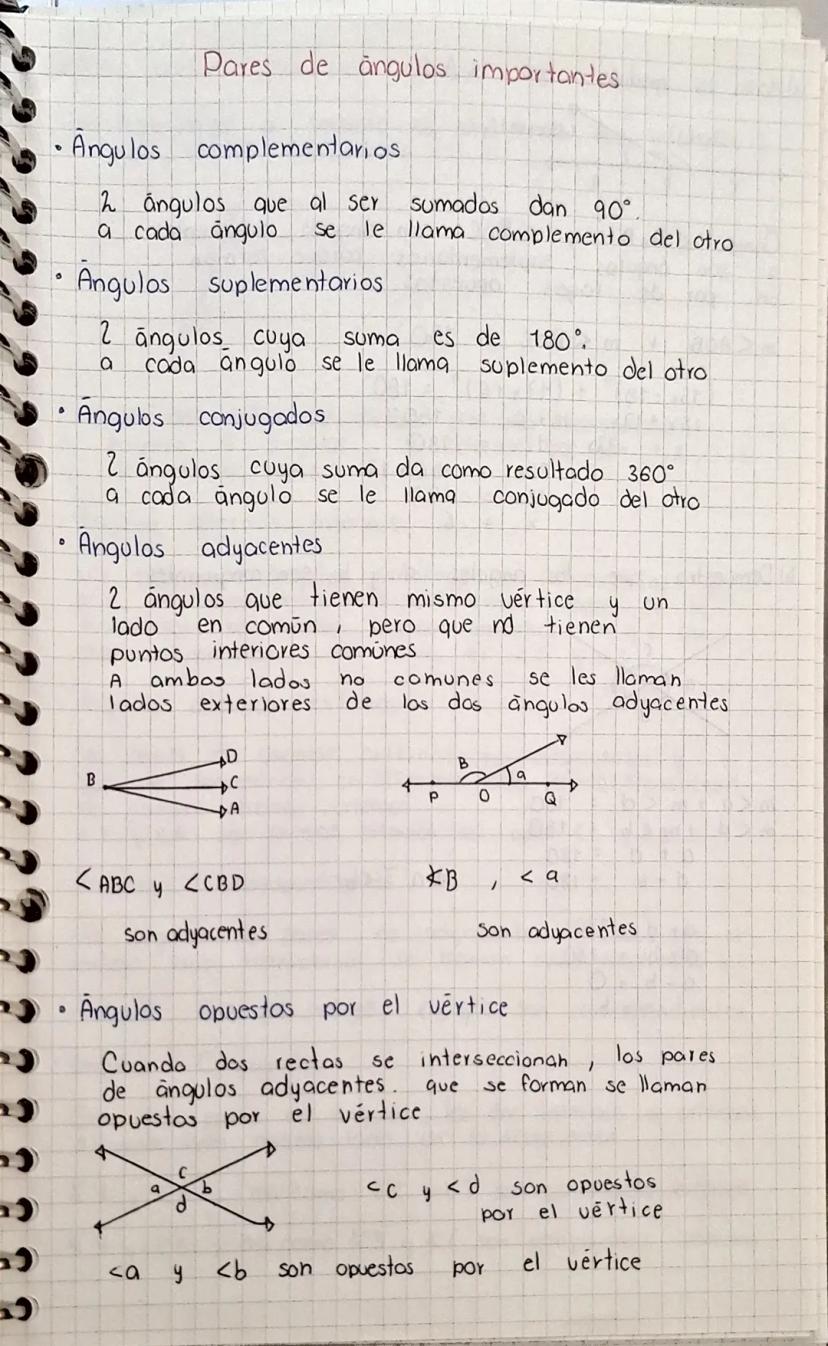 Pares de ángulos importantes
• Ángulos complementarios
2 ángulos que al ser sumados dan 90°.
a cada ángulo se le llama complemento del otro
• Ángulos suplementarios
2 ángulos cuya suma es de 180°.
a cada ángulo se le llama suplemento del otro
• Ángulos conjugados
2 ángulos cuya suma da como resultado 360°
a cada ángulo se le llama conjugado del otro
• Ángulos adyacentes
2 ángulos que tienen mismo vértice y un
lado en común, pero que no tienen
puntos interiores comúnes
A ambos lados no comunes se les llaman
lados exteriores de los dos ángulos adyacentes
D
B C
A
B a
P O Q
<ABC y <CBD
∢B , <a
son adyacentes
son adyacentes
• Ángulos opuestos por el vértice
Cuando dos rectas se interseccionan, los pares
de ángulos adyacentes. que se forman se llaman
opuestos por el vértice
c
a b
d
<c y <d son opuestos
por el vértice
<a y <b son opuestos por el vértice